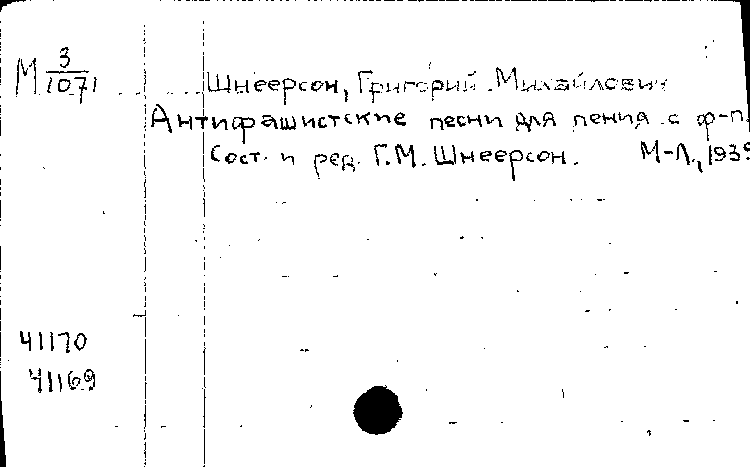 М 3/1071
Шнеерсон, Григорий Михайлович
Антифашистские песни для пения с ф-п.
Сост. и ред. Г.М. Шнеерсон. М-Л., 1939
41170
41169